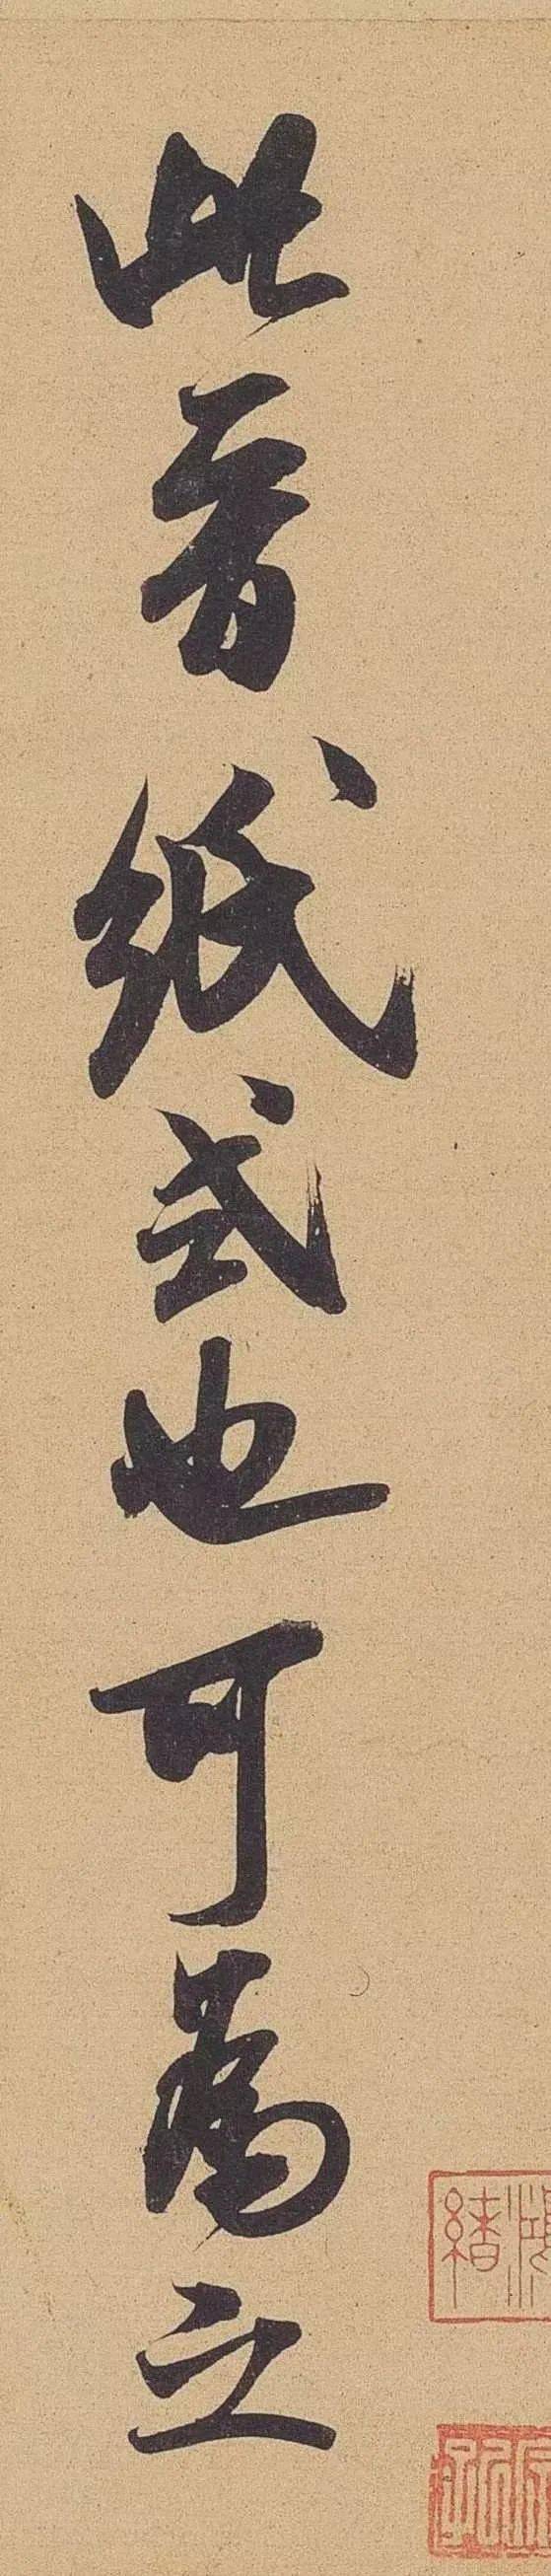 此晉紙式也可為之